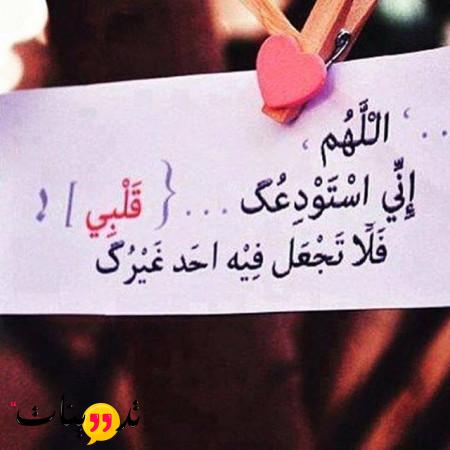 . . ‘ اللْهُم ‘
إِنِّي اسْتَوْدِعُگ ... { قَلْبِي ] !
فَلَا تَجْعَل فِيْه احَد غَيْرُگ
تدوينات